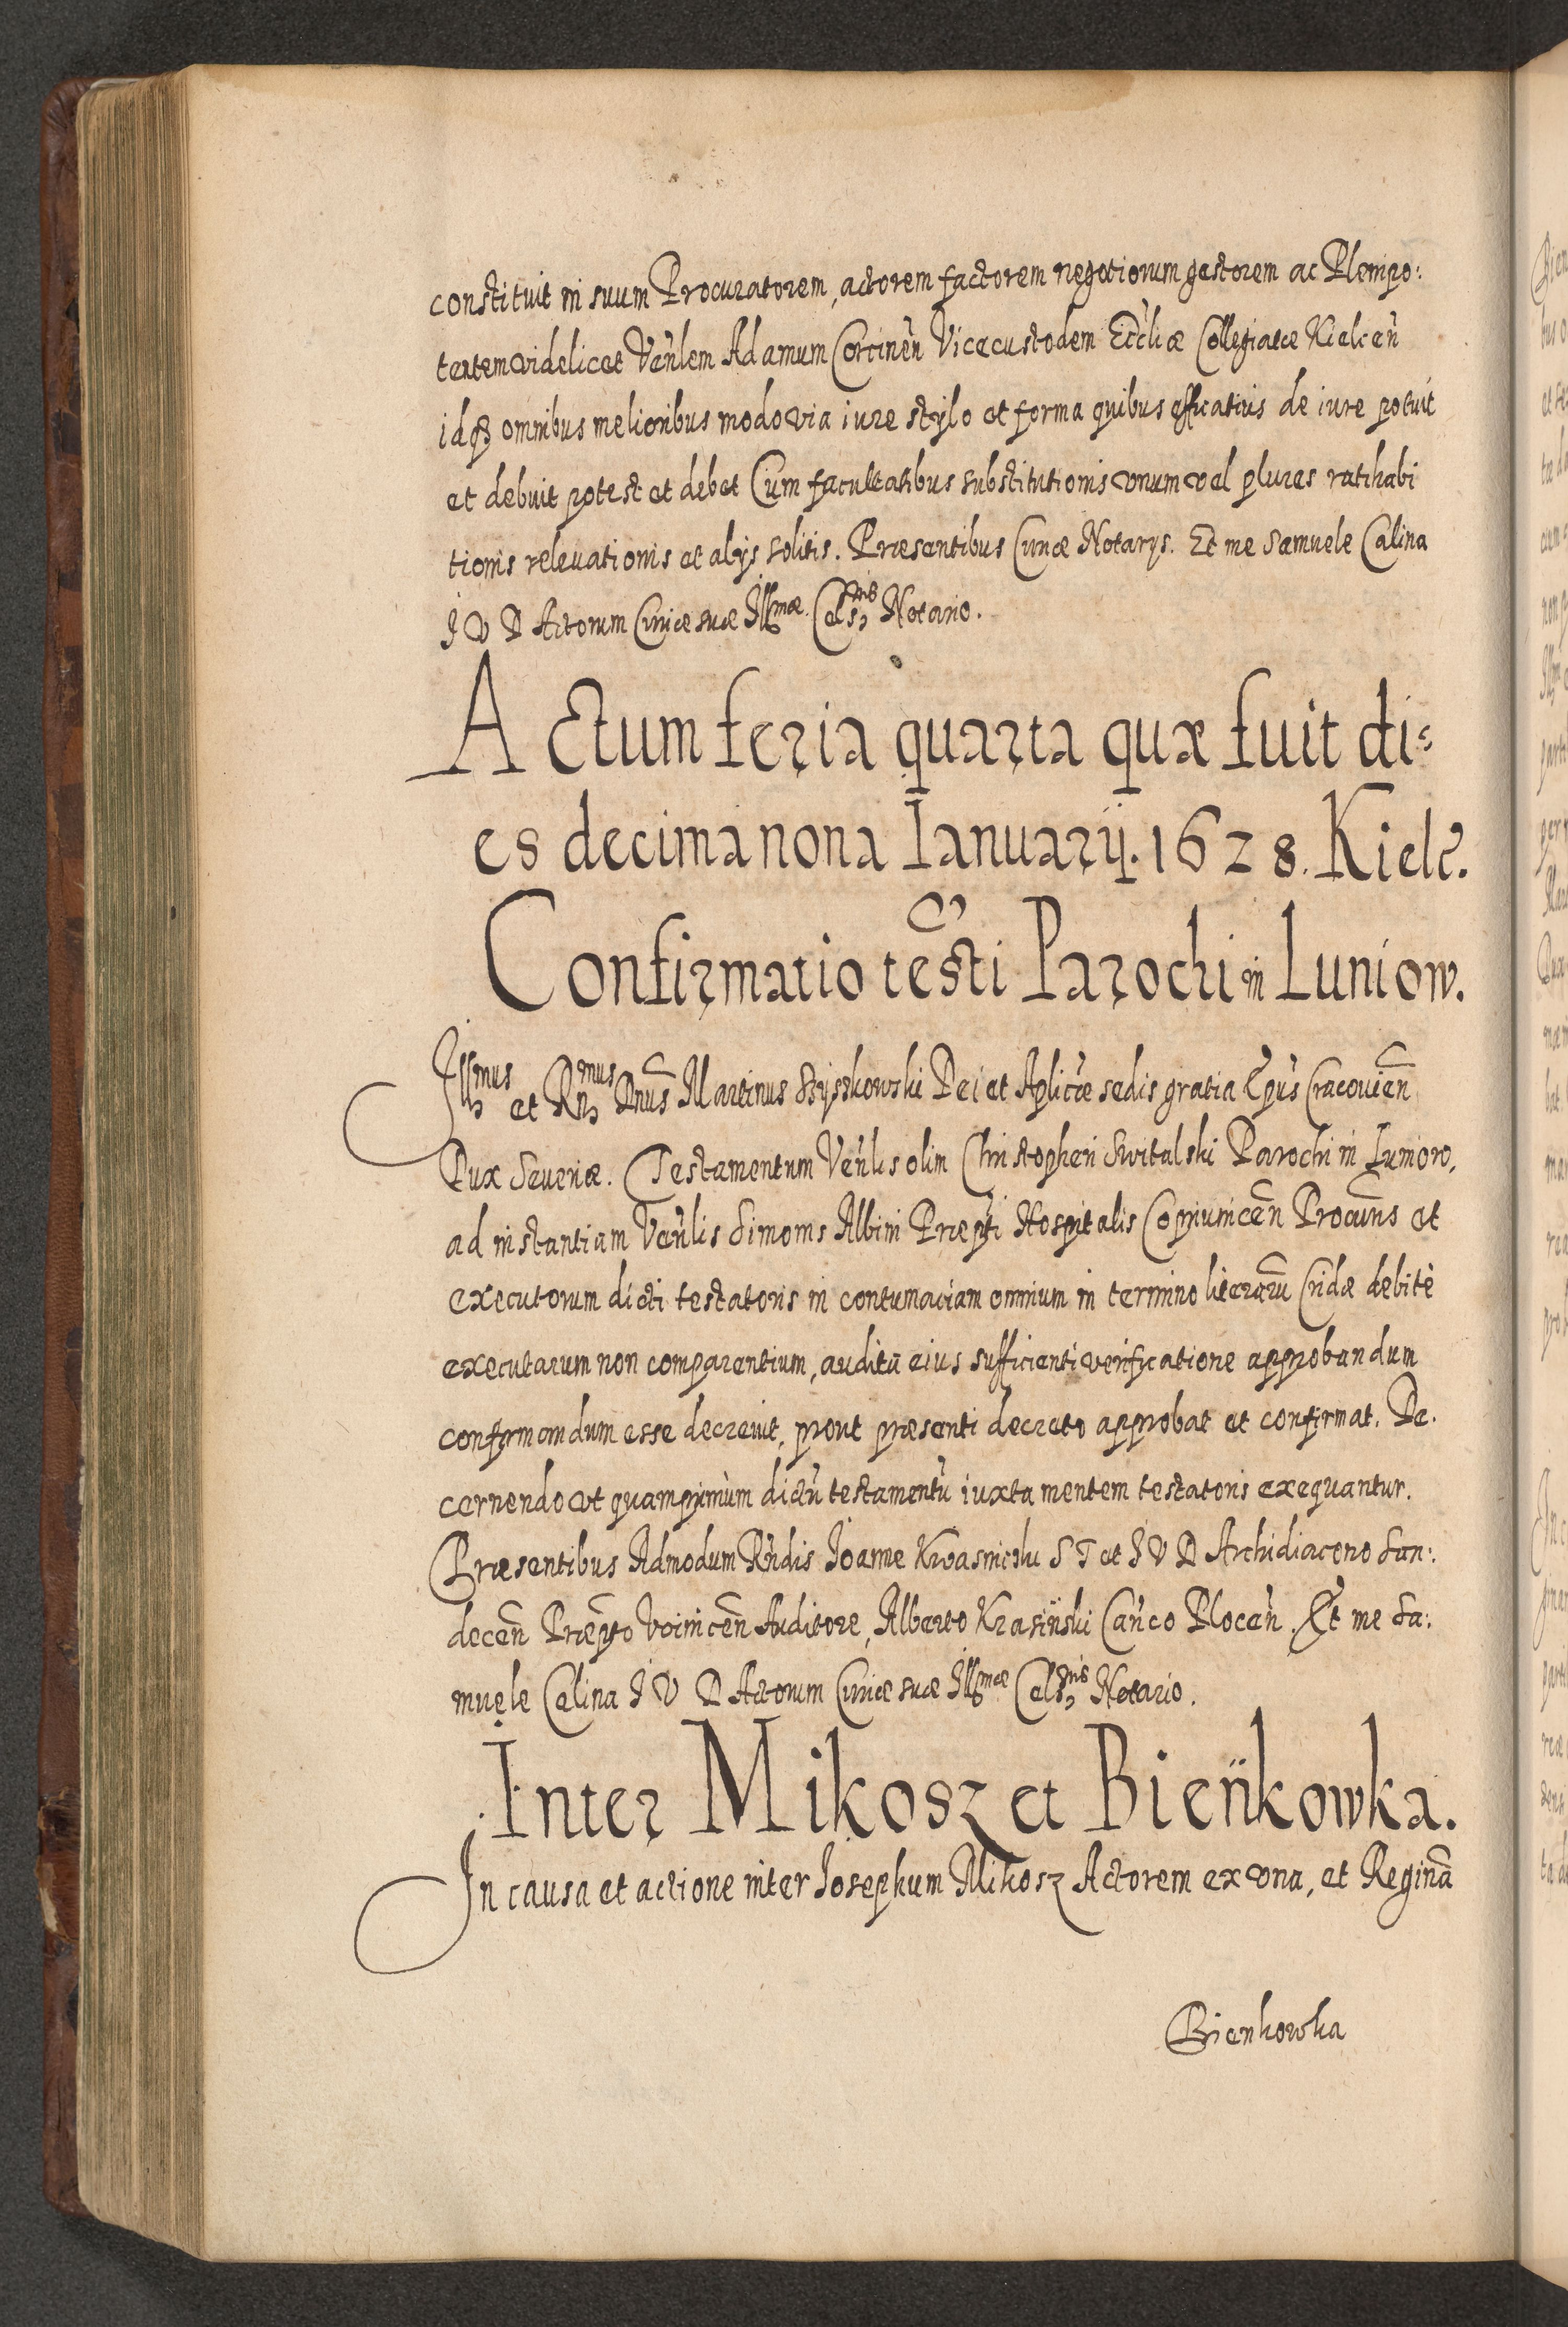 constituit in suum Procuratorem, actorem factorem negotiorum gestorem ac Plenipo:
tentem videlicet Venlem Adamum Corcinen Vicecustodem Eccliæ Collegiatæ Kielcen
idq3 omnibus melioribus modo via iure stylo et forma quibus efficatius de iure potuit
et debuit potest et debet Cum facultatibus substitutionis vnum vel plures ratihabi
tionis releuationis et alijs solitis. Præsentibus Curiæ Notarys. Et me Samuele Calina
J V D Actorum Curiæ suæ Illmæ Celsnis Notario.
Actum feria quarta quæ fuit di=
es decima nona Ianuarij. 1628. Kielc.
Confirmatio testi Parochi in Luniow.
Illmus et Rnmus Dnus Martinus Szyszkowski Dei et Aplicæ sedis gratia Epus Cracouien
Dux Seueriæ. Testamentum Venlis olim Christopheri Switalski Parochi in Luniow,
ad instantiam Venlis Simonis Albini Præpti Hospitalis Copriunicen Procuns et
executorum dicti testatoris in contumaciam omnium in termino literaru Cridæ debitè
executarum non comparentium, audita eius sufficienti verificatione approbandum
confirmandum esse decreuit, prout præsenti decreto approbat et confirmat. De.
cernendo vt quamprimùm dictu testamentu iuxta mentem testatoris exequantur.
Præsentibus Admodum Rndis Ioanne Kwasnicki S T et J V D Archidiacono San:
decen Præpto Voinicen Auditore, Alberto Krasiński Canco Plocen. Et me Sa:
muele Calina J V D Actorum Curiæ suæ Illmæ Celsnis Notario.
Inter Mikosz et Bieńkowka.
In causa et actione inter Iosephum Mikosz Actorem ex vna, et Reginā
Bienkowka